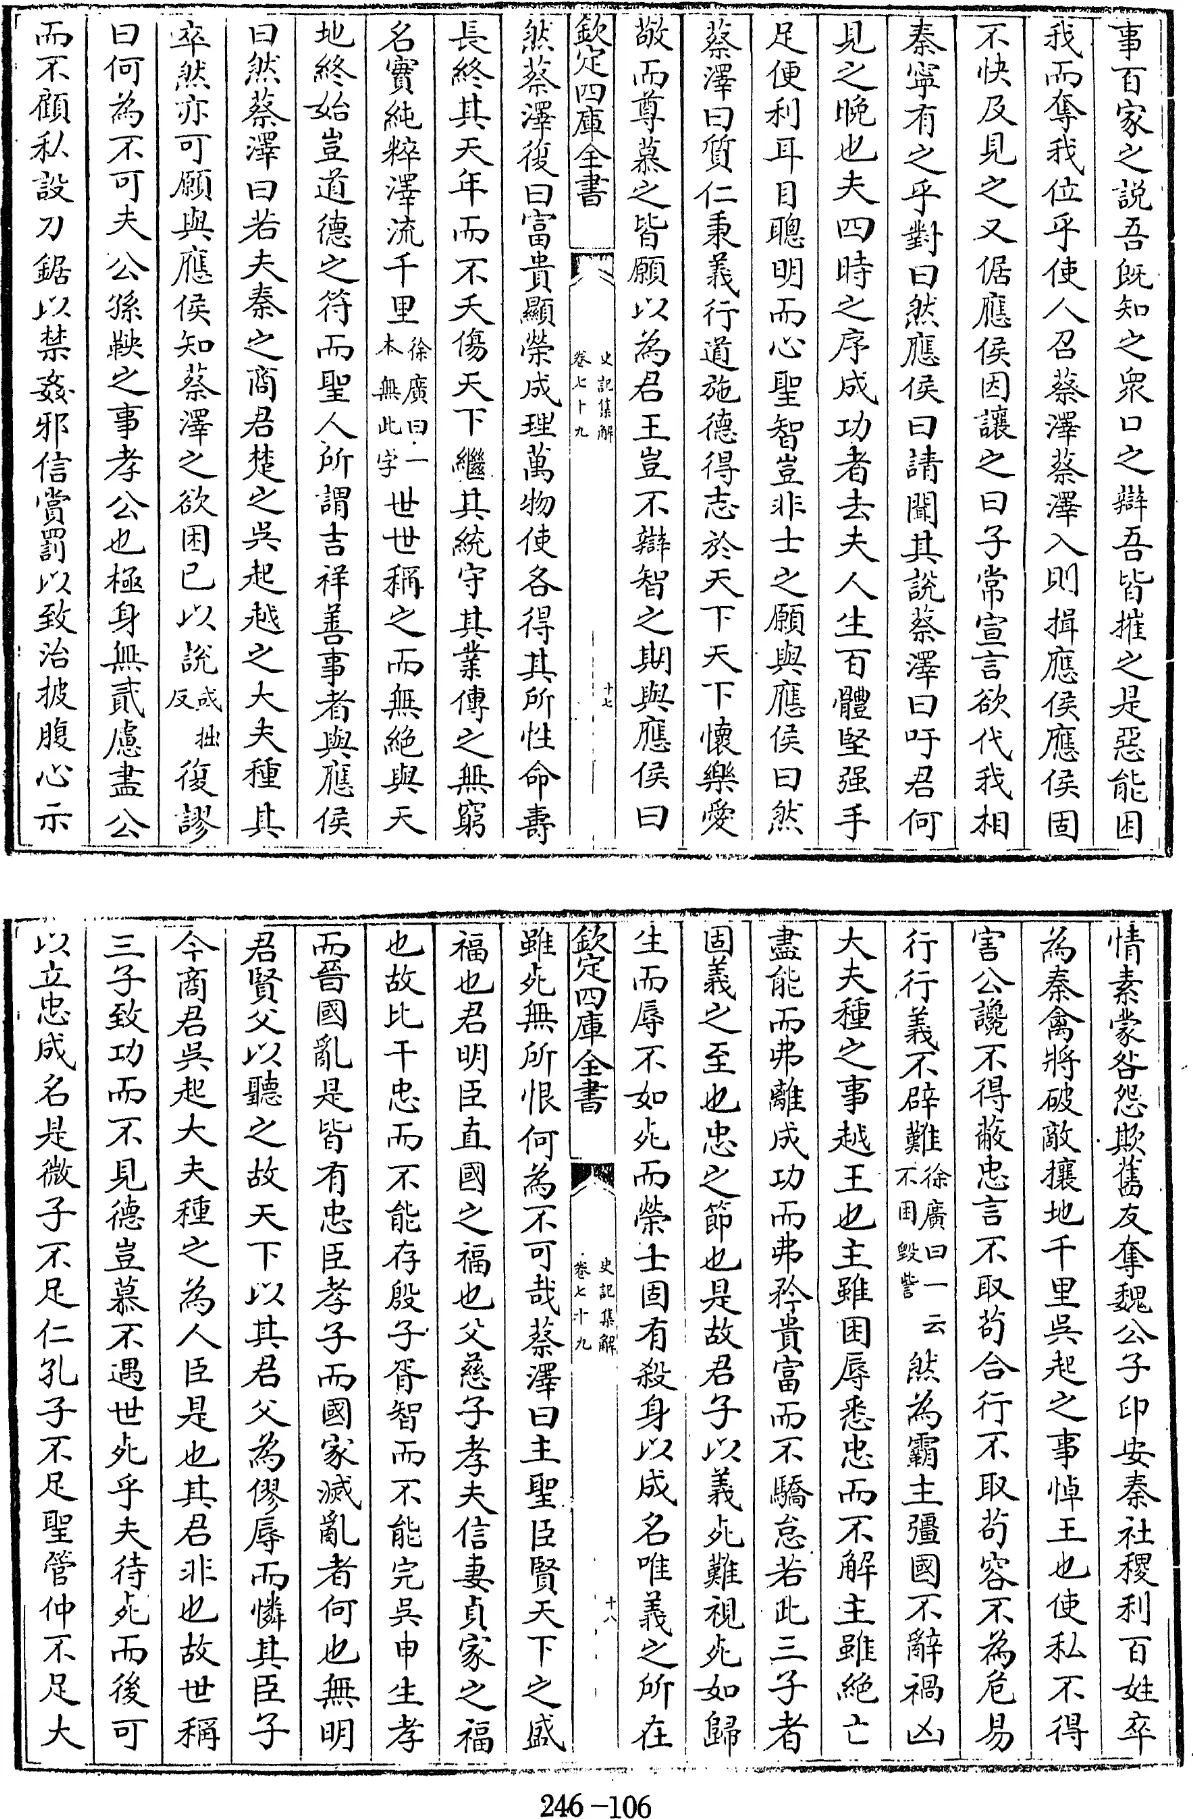 事百家之說吾既知之衆口之辯吾皆摧之是惡能困
我而奪我位乎使人召蔡澤蔡澤入則揖應侯應侯固
不快及見之又倨應侯因讓之曰子常宣言欲代我相
秦寧有之乎對曰然應侯曰請聞其說蔡澤曰吁君何
見之晚也夫四時之序成功者去夫人生百體堅强手
足便利耳目聰明而心聖智豈非士之願與應侯曰然
蔡澤曰質仁秉義行道施德得志於天下天下懷樂愛
敬而尊慕之皆願以為君王豈不辯智之期與應侯曰
欽定四庫全書
史記集解
卷七十九
十七
然蔡澤復曰富貴顯榮成理萬物使各得其所性命壽
長終其天年而不夭傷天下繼其統守其業傳之無窮
名實純粹澤流千里徐廣曰一本無此字世世稱之而無絶與天
地終始豈道德之符而聖人所謂吉祥善事者與應侯
曰然蔡澤曰若夫秦之商君楚之吳起越之大夫種其
卒然亦可願與應侯知蔡澤之欲困已以說式拙反復謬
曰何為不可夫公孫鞅之事孝公也極身無貳慮盡公
而不顧私設刀鋸以禁姦邪信賞罰以致治披腹心示
情素蒙咎怨欺舊友奪魏公子卬安秦社稷利百姓卒
為秦禽將破敵攘地千里吳起之事悼王也使私不得
害公讒不得蔽忠言不取茍合行不取茍容不為危易
行行義不辟難徐廣曰一云不困毀訾然為霸主彊國不辭禍凶
大夫種之事越王也主雖困辱悉忠而不解主雖絶亡
盡能而弗離成功而弗矜貴富而不驕怠若此三子者
固義之至也忠之節也是故君子以義死難視死如歸
生而辱不如死而榮士固有殺身以成名唯義之所在
欽定四庫全書
史記集解
卷七十九
十八
雖死無所恨何為不可哉蔡澤曰主聖臣賢天下之盛
福也君明臣直國之福也父慈子孝夫信妻貞家之福
也故比干忠而不能存殷子胥智而不能完吳申生孝
而晉國亂是皆有忠臣孝子而國家滅亂者何也無明
君賢父以聽之故天下以其君父為僇辱而憐其臣子
今商君吳起大夫種之為人臣是也其君非也故世稱
三子致功而不見德豈慕不遇世死乎夫待死而後可
以立忠成名是微子不足仁孔子不足聖管仲不足大
246-106